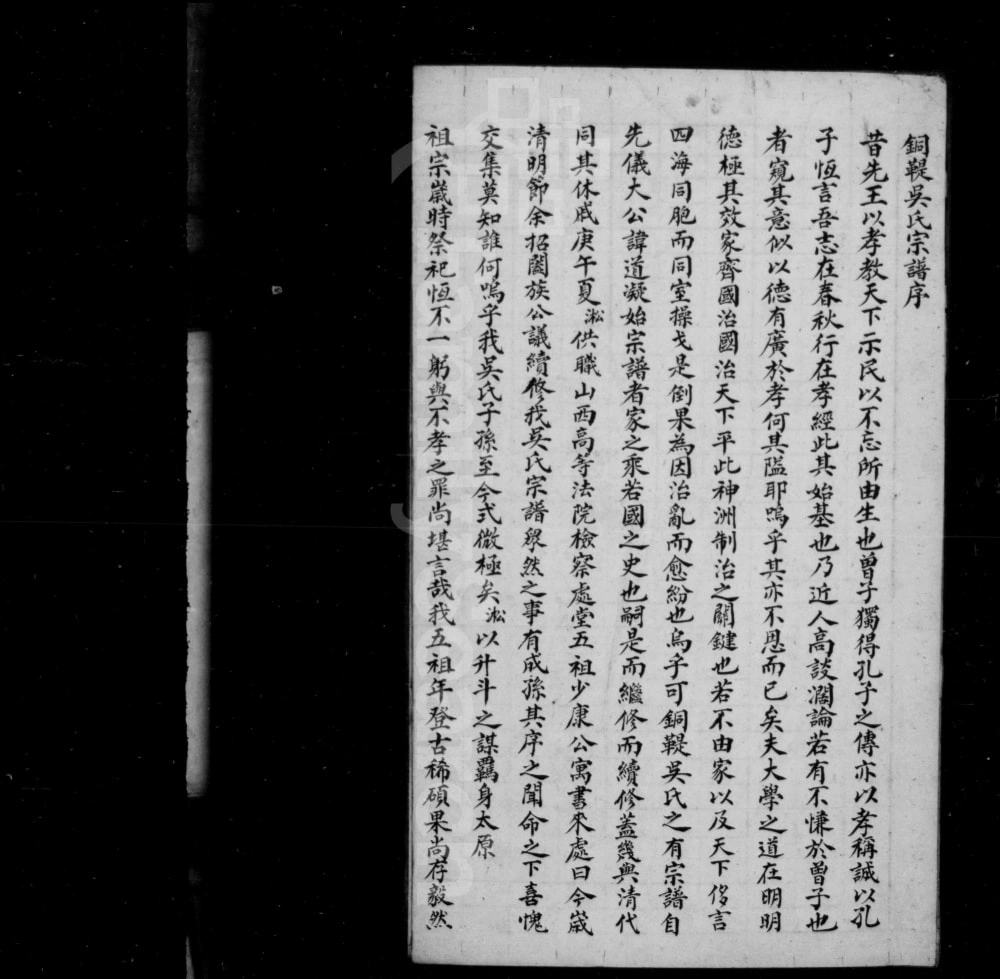 銅鞮吳氏宗譜序
昔先王以孝教天下示民以不忘所由生也曾子獨得孔子之傳亦以孝稱誠以孔
子恆言吾志在春秋行在孝經此其始基也乃近人高談濶論若有不慊於曾子也
者窺其意似以德有廣於孝何其隘耶嗚乎其亦不思而已矣夫大學之道在明明
德極其效家齊國治國治天下平此神洲制治之關鍵也若不由家以及天下侈言
四海同胞而同室操戈是倒果為因治亂而愈紛也烏乎可銅鞮吳氏之有宗譜自
先儀大公諱道凝始宗譜者家之乘若國之史也嗣是而繼修而續修蓋幾與清代
同其休戚庚午夏淞供職山西高等法院檢察處堂五祖少康公寓書來處曰今歲
清明節余招闔族公議續修我吳氏宗譜衆然之事有成孫其序之聞命之下喜愧
交集莫知誰何嗚乎我吳氏子孫至今式微極矣淞以升斗之謀羈身太原
祖宗歲時祭祀恆不一躬與不孝之罪尚堪言哉我五祖年登古稀碩果尚存毅然